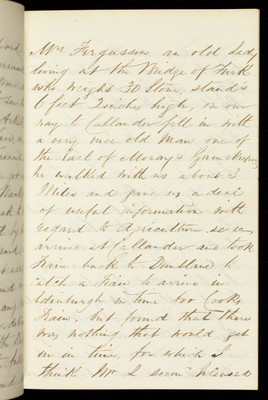 Mrs Fergusson an old lady
living at the Bridge of Turk
who weighs 30 Stone, stands
6 feet 2 inches high, on our
way to Callander fell in with
a very nice old man one of
the Earl of Moray's Gamekeepers
he walked with us about 3
Miles and gave us a deal
of useful information with
regard to Agriculture. so on
arrived at Callander and took
train back to Dunblane to
catch a train to arrive in
Edinburgh in time for Cooks
Train, but found that there
was nothing that would get
in in time, for which I
think Mr L seem'd pleased